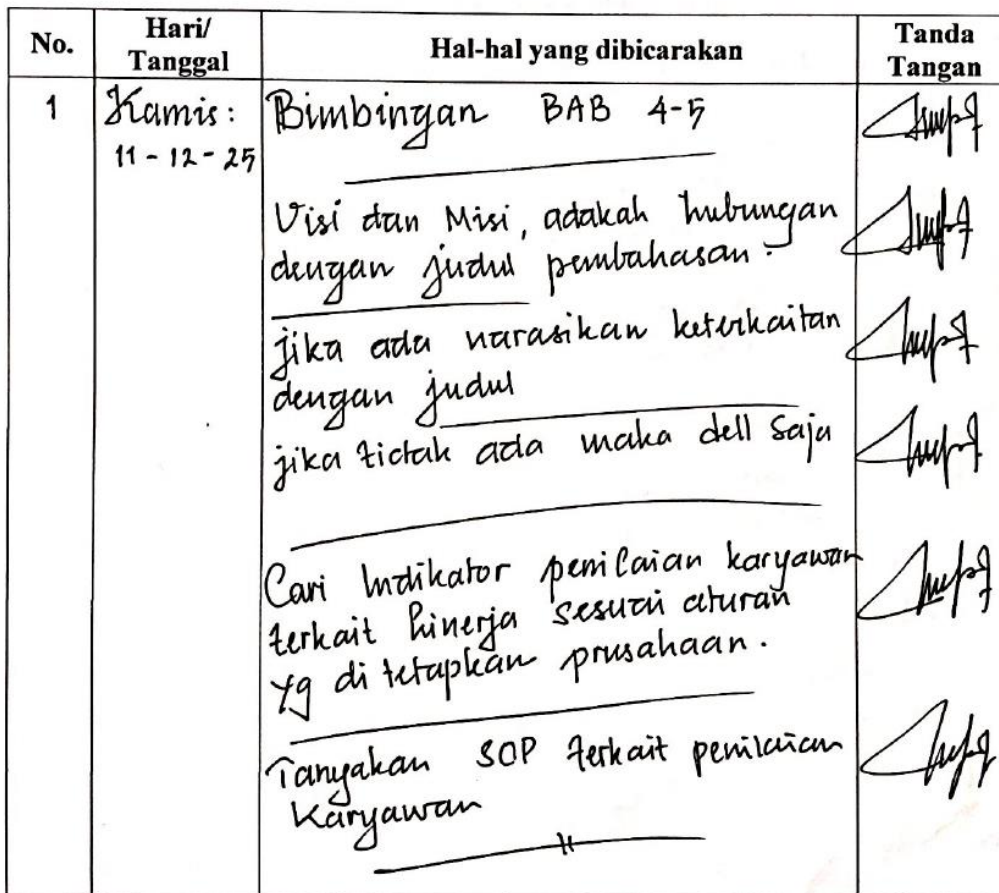 No.
Hari/
Tanggal
Hal-hal yang dibicarakan
Tanda
Tangan
1
Kamis:
11 - 12 - 25
Bimbingan BAB 4-5
Visi dan Misi, adakah hubungan
dengan judul pembahasan.
jika ada narasikan keterkaitan
dengan judul
jika tidak ada maka dell saja
Cari Indikator penilaian karyawan
terkait kinerja sesuai aturan
yg di tetapkan prusahaan.
Tanyakan SOP terkait penilaian
Karyawan